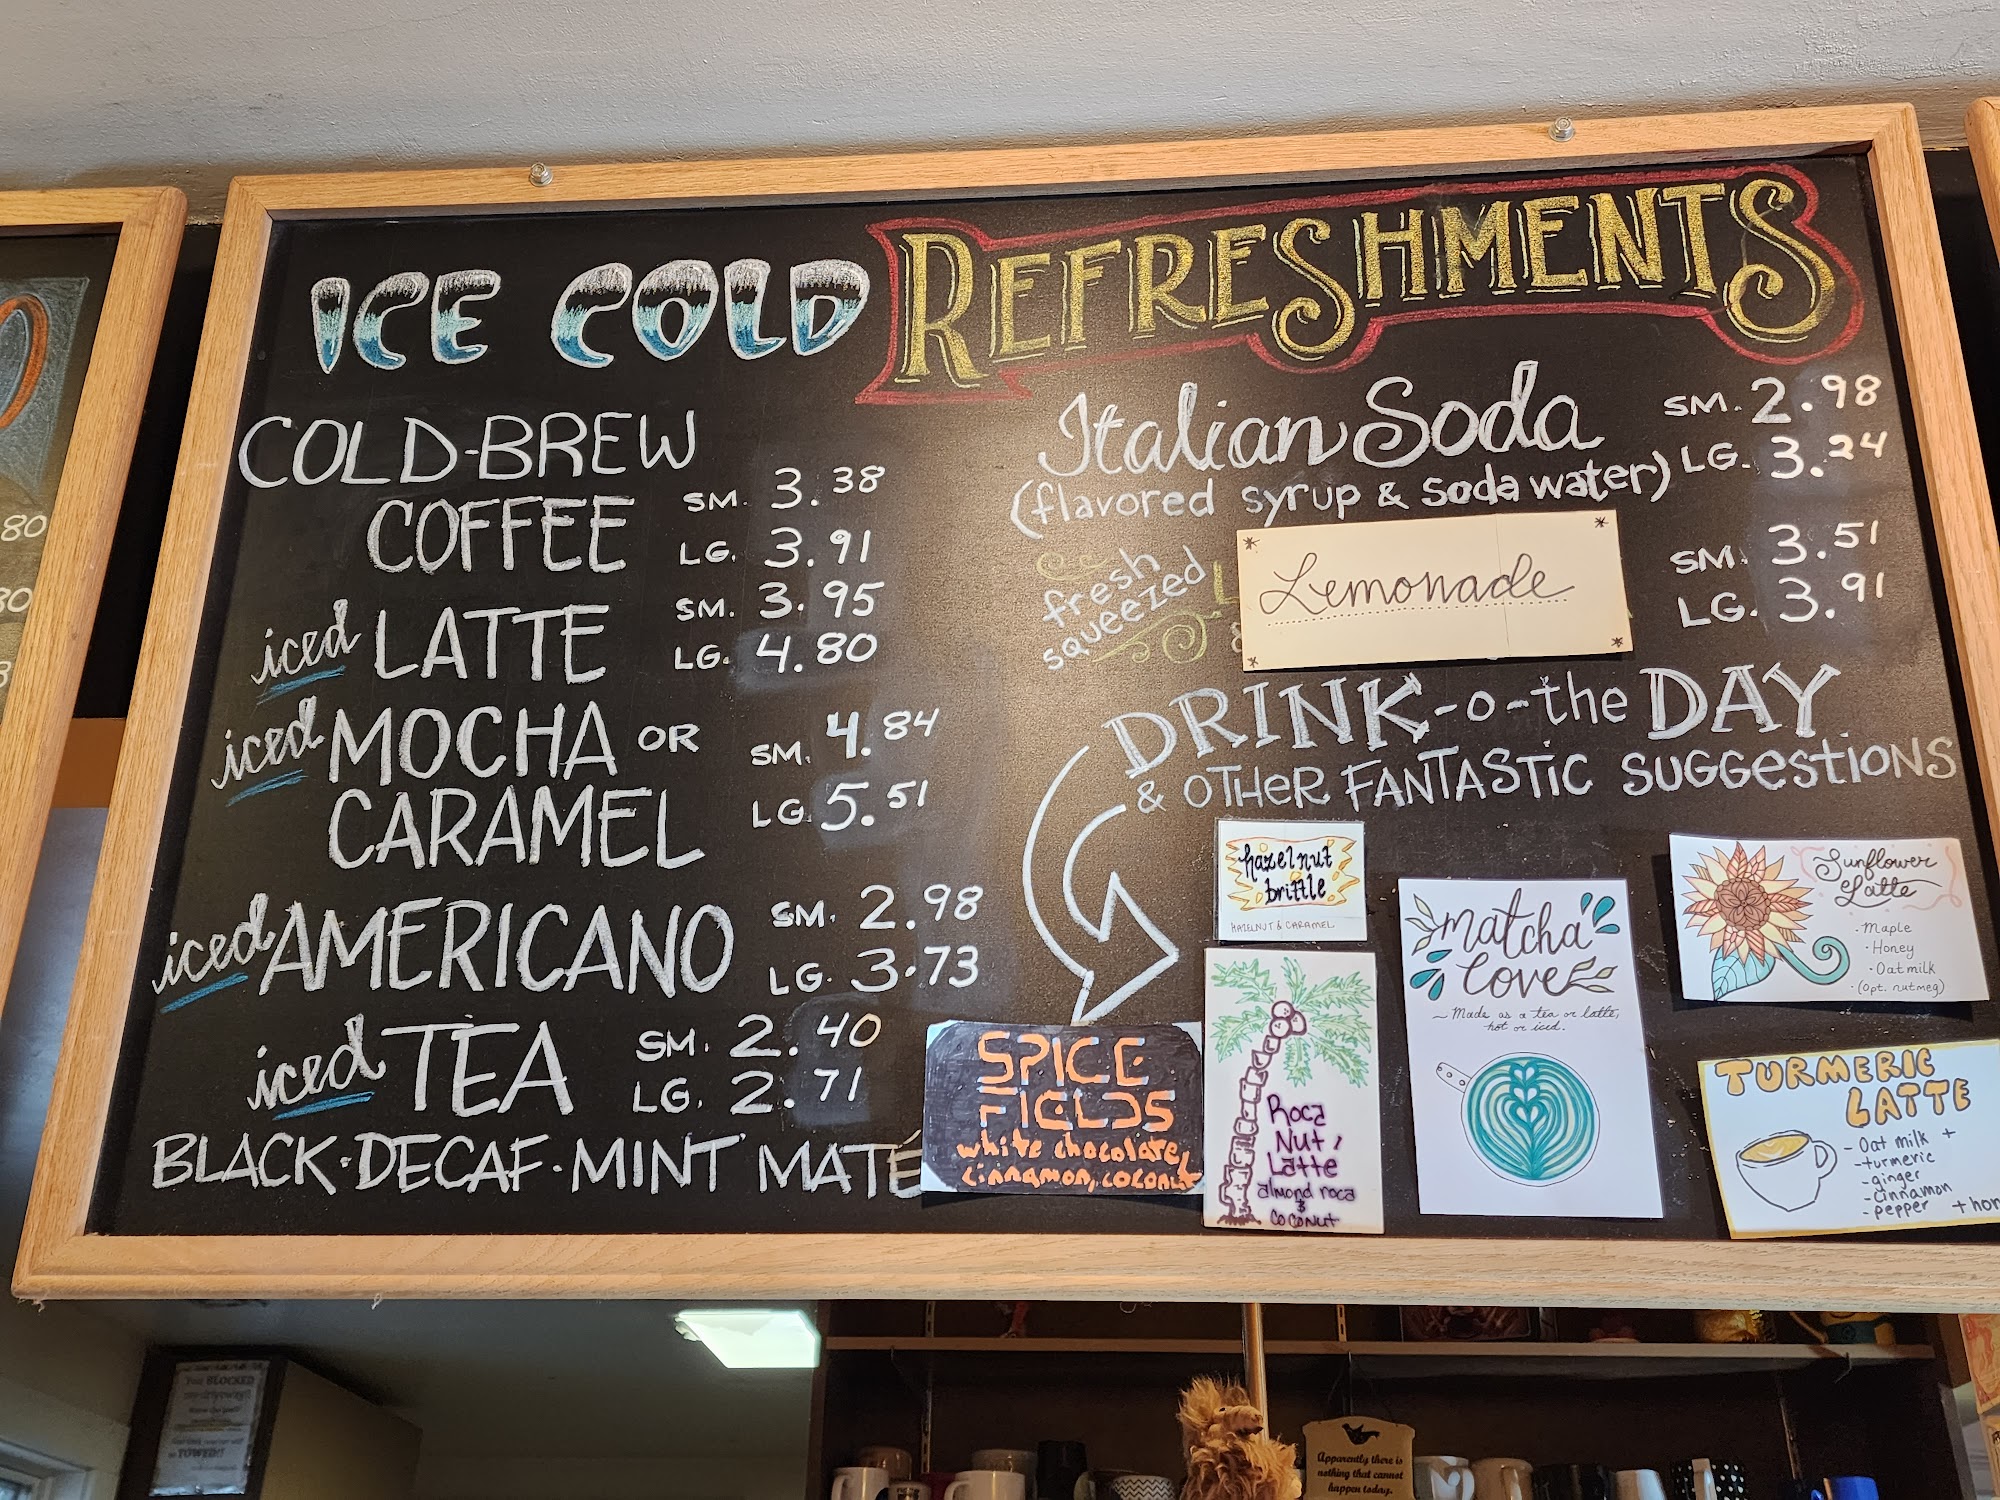 ICE COLD REFRESHMENTS
COLD-BREW
COFFEE
SM. 3.38
LG. 3.91
iced LATTE
SM. 3.95
LG. 4.80
iced MOCHA OR
CARAMEL
SM. 4.84
LG. 5.51
iced AMERICANO
SM. 2.98
LG. 3.73
iced TEA
SM. 2.40
LG. 2.71
BLACK·DECAF·MINT MATÉ
Italian Soda
(flavored syrup & soda water)
SM. 2.98
LG. 3.24
fresh
squeezed
Lemonade
SM. 3.51
LG. 3.91
DRINK-o-the DAY
& OTHER FANTASTIC SUGGESTIONS
hazelnut
brittle
HAZELNUT & CARAMEL
SPICE
FIELDS
white chocolate,
cinnamon, coconut
Roca
Nut
Latte
almond roca
&
coconut
matcha
love
~ Made as a tea or latte,
hot or iced.
Sunflower
Latte
· Maple
· Honey
· Oat milk
· (opt. nutmeg)
TURMERIC
LATTE
- Oat milk +
- turmeric
- ginger
- cinnamon
- pepper + hon
80
You BLOCKED
TOWED!
Apparently there is
nothing that cannot
happen today.